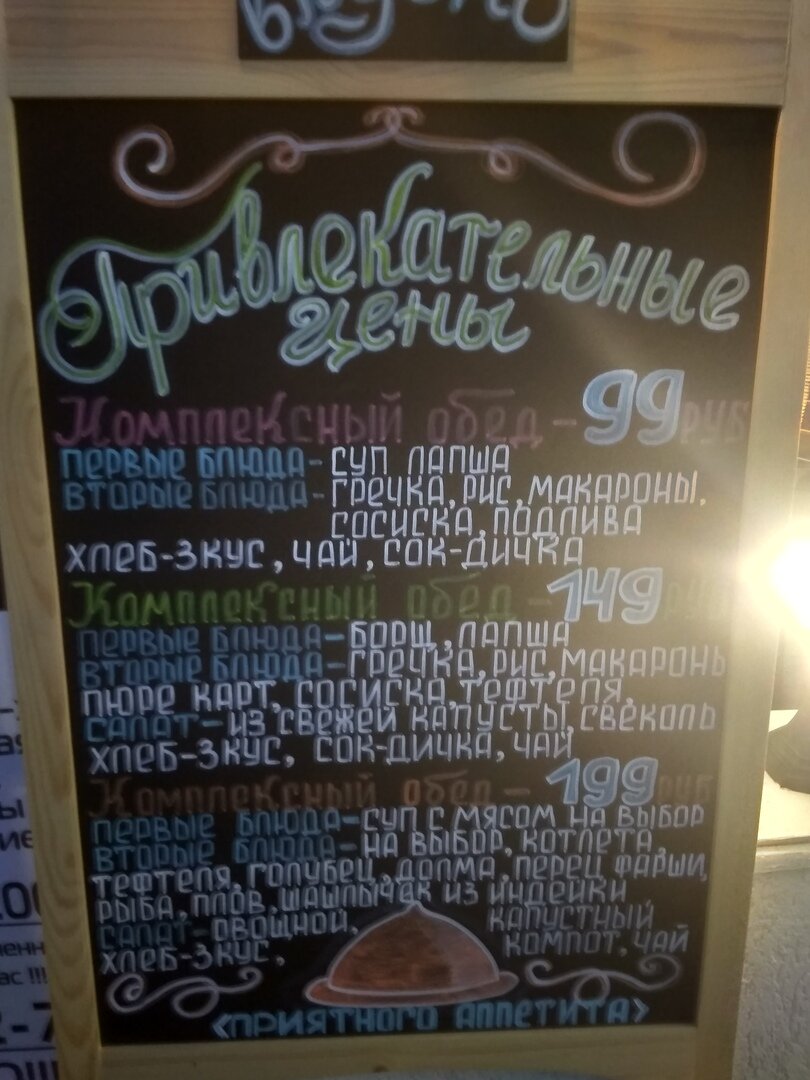 Привлекательные
цены
Комплексный обед - 99 руб
ПЕРВЫЕ БЛЮДА - СУП ЛАПША
ВТОРЫЕ БЛЮДА - ГРЕЧКА, РИС, МАКАРОНЫ,
СОСИСКА, ПОДЛИВА
ХЛЕБ-3КУС, ЧАЙ, СОК-ДИЧКА
Комплексный обед - 149 руб
ПЕРВЫЕ БЛЮДА - БОРЩ, ЛАПША
ВТОРЫЕ БЛЮДА - ГРЕЧКА, РИС, МАКАРОНЬ
ПЮРЕ КАРТ, СОСИСКА, ТЕФТЕЛЯ,
САЛАТ - ИЗ СВЕЖЕЙ КАПУСТЫ, СВЕКОЛЬ
ХЛЕБ-3КУС, СОК-ДИЧКА, ЧАЙ
Комплексный обед - 199 руб
ПЕРВЫЕ БЛЮДА - СУП С МЯСОМ НА ВЫБОР
ВТОРЫЕ БЛЮДА - НА ВЫБОР, КОТЛЕТА,
ТЕФТЕЛЯ, ГОЛУБЕЦ, ДОЛМА, ПЕРЕЦ ФАРШИ,
РЫБА, ПЛОВ, ШАШЛЫЧАК ИЗ ИНДЕЙКИ
САЛАТ - ОВОЩНОЙ, КАПУСТНЫЙ
ХЛЕБ-3КУС, КОМПОТ, ЧАЙ
<ПРИЯТНОГО АППЕТИТА>